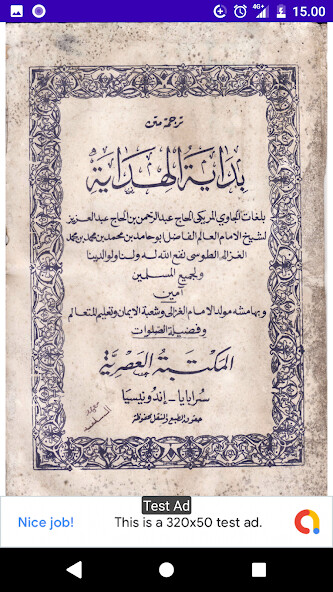 4G
15.00
ترجمة متن
بداية الهداية
بلغات الجاوي المريكي الحاج عبد الرحمن بن الحاج عبد العزيز
لشيخ الامام العالم الفاضل ابو حامد بن محمد بن محمد بن محمد
الغزالي الطوسى نفع الله له ولنا ولوالدينا
ولجميع المسلمين
آمين
وبهامشه مولد الامام الغزالى وشعبة الايمان وتعليم المتعالم
وفضيلة الصلوات
المكتبة العصرية
سرابايا - إندونيسيا
حقوق الطبع والنقل محفوظة
Test Ad
Nice job!
This is a 320x50 test ad.